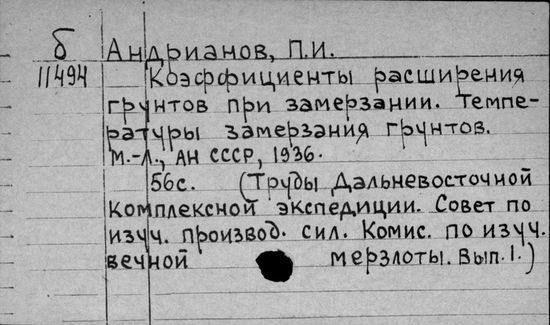 б Андрианов, П.И.
11494 Коэффициенты расширения
грунтов при замерзании. Темпе-
ратуры замерзания грунтов.
М.-Л., АН СССР, 1936.
56с. (Труды Дальневосточной
комплексной экспедиции. Совет по
изуч. производ. сил. Комис. по изуч.
вечной мерзлоты. Вып. 1.)